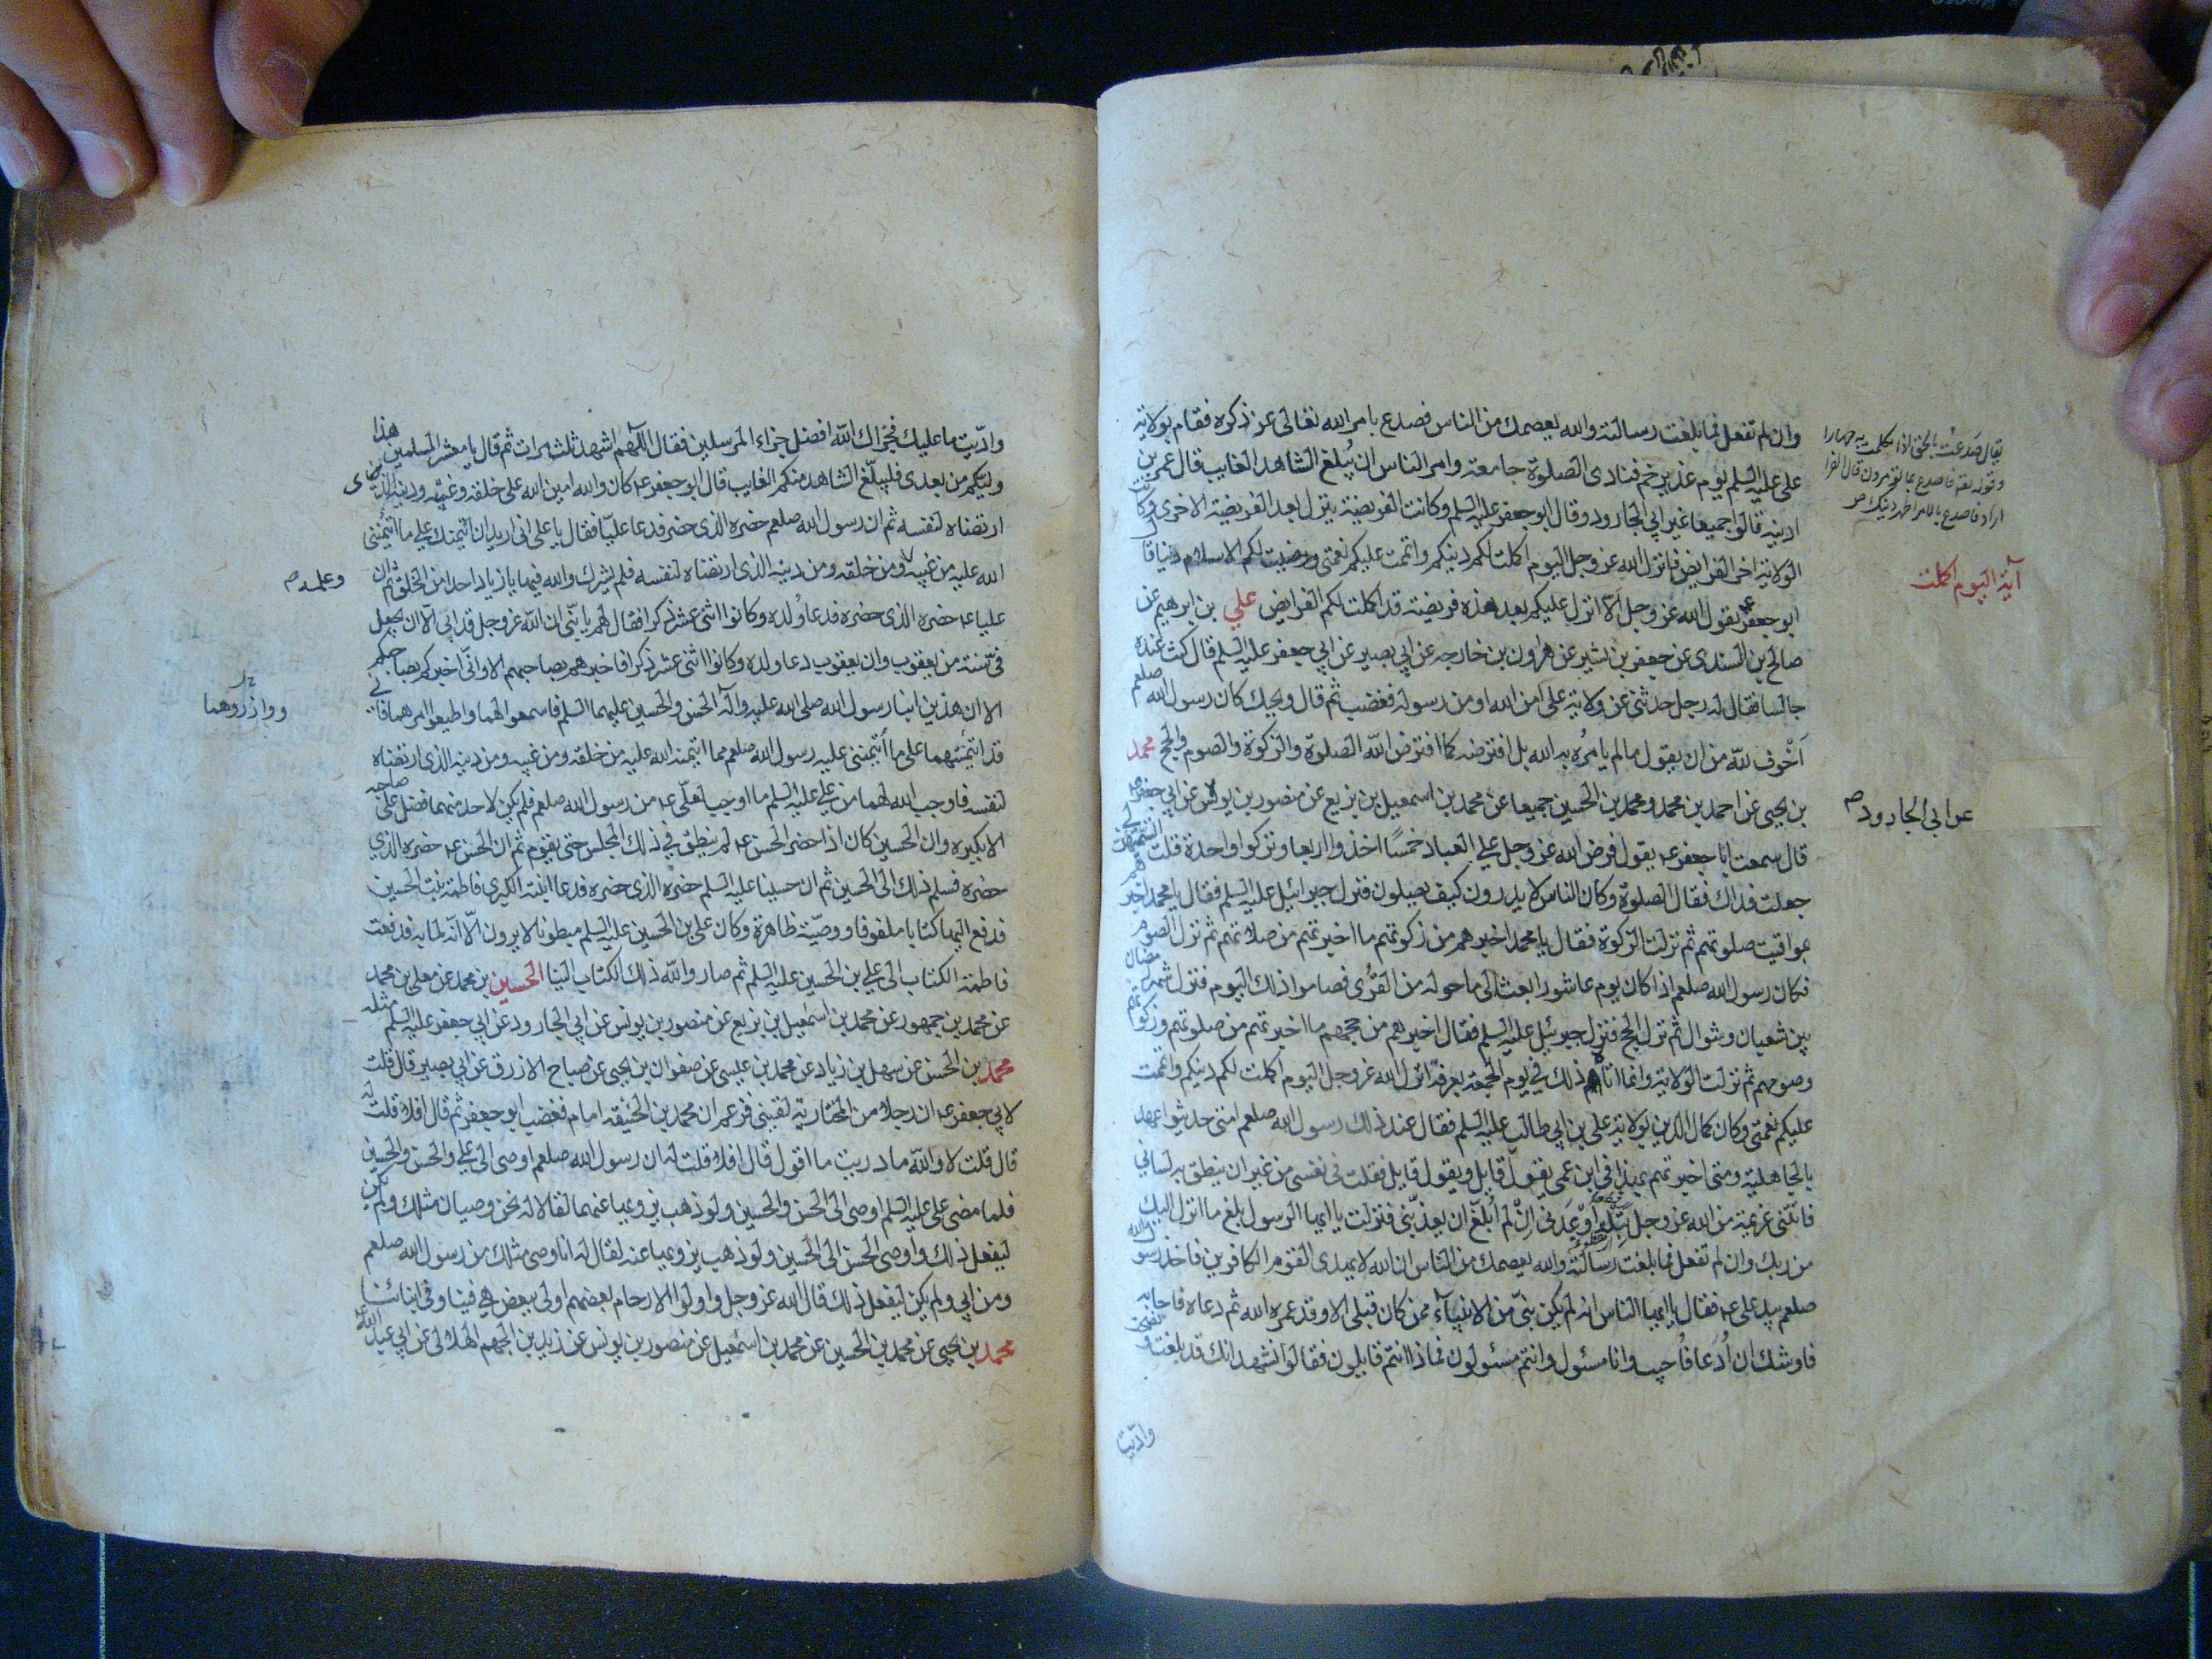 وان لم تفعل فما بلغت رسالته والله يعصمك من الناس فصدع بامر الله تعالى عز ذكره فقام بولاية
على عليه السلم يوم غدير خم فنادى الصلوة جامعة وامر الناس ان يبلغ الشاهد الغايب قال عمر بن
اذينه قالوا جميعا غير ابي الجارود وقال ابو جعفر عليه السلم وكانت الفريضة ينزل بعد الفريضة الاخرى وكانت
الولاية اخر الفرايض فانزل الله عز وجل اليوم اكملت لكم دينكم واتممت عليكم نعمتى ورضيت لكم الاسلام دينا قا
ابو جعفر يقول الله عز وجل لا انزل عليكم بعد هذه فريضة قد اكملت لكم الفرايض علي بن ابرهيم عن
صالح بن السندى عن جعفر بن بشير عن هرون بن خارجه عن ابي بصير عن ابي جعفر عليه السلم قال كنت عنده
جالسا فقال له رجل حدثنى عن ولاية على امن الله او من رسوله فغضب ثم قال ويحك كان رسول الله صلعم
اَخْوف لله من ان يقول ما لم يامره به الله بل افترضه كما افترض الله الصلوة والزكوة والصوم والحج محمد
بن يحيى عن احمد بن محمد ومحمد بن الحسين جميعا عن محمد بن اسمعيل بن بزيع عن منصور بن يونس عن ابي جعفر ع
قال سمعت ابا جعفر ع يقول فرض الله عز وجل على العباد خمسًا اخذوا اربعا وتركوا واحدة قلت اتسميهن لى
جعلت فداك فقال الصلوة وكان الناس لا يدرون كيف يصلون فنزل جبرائيل عليه السلم فقال يا محمد اخبرهم
بمواقيت صلوتهم ثم نزلت الزكوة فقال يا محمد اخبرهم من زكوتهم ما اخبرتهم من صلاتهم ثم نزل الصوم
فكان رسول الله صلعم اذا كان يوم عاشورا بعث الى ما حوله من القرى فصاموا ذلك اليوم فنزل شهر رمضان
بين شعبان وشوال ثم نزل الحج فنزل جبرئيل عليه السلم فقال اخبرهم من حجهم ما اخبرتهم من صلوتهم وزكوتهم
وصومهم ثم نزلت الولاية وانما اتاه ذلك في يوم الجمعة بعرفة انزل الله عز وجل اليوم اكملت لكم دينكم واتممت
عليكم نعمتى وكان كمال الدين بولاية على بن ابي طالب عليه السلم فقال عند ذلك رسول الله صلعم امتى حديثوا عهد
بالجاهلية ومتى اخبرتهم بهذا فى ابن عمى يقول قايل ويقول قايل فقلت فى نفسى من غير ان ينطق به لسانى
فاتتنى عزيمة من الله عز وجل بتلة اوعدنى ان لم ابلغ ان يعذبنى فنزلت يا ايها الرسول بلغ ما انزل اليك
من ربك وان لم تفعل فما بلغت رسالته والله يعصمك من الناس ان الله لا يهدى القوم الكافرين فاخذ رسول الله
صلعم بيد على ع فقال يا ايها الناس انه لم يكن نبىّ من الانبياء ممن كان قبلى الا وقد عمره الله ثم دعاه فاجابه
فاوشك ان اُدعا فاُجيب وانا مسئول وانتم مسئولون فماذا انتم قايلون فقالوا نشهد انك قد بلغت ونصحت
وادّيت
يقال صَدعتُ بالحق اذا تكلمت به جهارا
وقوله تعه فاصدع بما تومرون قال الفرا
اراد فاصدع بالامر اظهر دينك ص
آية اليوم اكملت
عن ابى الجارود
وادّيت ما عليك فجزاك الله افضل جزاء المرسلين فقال اللهم اشهد ثلث مرات ثم قال يا معشر المسلمين هذا
وليكم من بعدى فليبلّغ الشاهد منكم الغايب قال ابو جعفر ع كان والله امين الله على خلقه وغيبه ودينه الذى
ارتضاه لنفسه ثم ان رسول الله صلعم حضره الذى حضر فدعا عليّا فقال يا على انى اريد ان ائتمنك على ما ائتمنني
الله عليه من غيبه ومن خلقه ومن دينه الذى ارتضاه لنفسه فلم يشرك والله فيها يا زياد احدا من الخلق ثم ان
عليا ع حضره الذى حضره فدعا وُلده وكانوا اثنى عشر ذكرا فقال لهم يا بنّى ان الله عز وجل قد ابى الّا ان يجعل
فىّ سنة من يعقوب وان يعقوب دعا ولده وكانوا اثنى عشر ذكرا فاخبرهم بصاحبهم الا وانّى اخبركم بصاحبكم
الا ان هذين ابنا رسول الله صلى الله عليه وآله الحسن والحسين عليهما السلم فاسمعوا لهما واطيعوا امرهما فانى
قد ائتمنتهما على ما أئتمننى عليه رسول الله صلعم مما ائتمنه الله عليه من خلقه ومن غيبه ومن دينه الذى ارتضاه
لنفسه فاوجب الله لهما من على عليه السلم ما اوجب لعلى ع من رسول الله صلعم فلم يكن لاحد منهما فضل على صاحبه
الا بكبره وان الحسين كان اذا حضر الحسن ع لم ينطق في ذلك المجلس حتى يقوم ثم ان الحسن ع حضره الذي
حضره فسلم ذلك الى الحسين ثم ان حسينا عليه السلم حضره الذى حضره فدعا ابنته الكبرى فاطمة بنت الحسين
فدفع اليها كتابا ملفوفا ووصيّة ظاهرة وكان على بن الحسين عليه السلم مبطونا لا يرون الّا انّه لما به فدفعت
فاطمة الكتاب الى على بن الحسين عليه السلم ثم صار والله ذلك الكتاب الينا الحسين بن محمد عن معلى بن محمد
عن محمد بن جمهور عن محمد بن اسمعيل بن بزيع عن منصور بن يونس عن ابي الجارود عن ابي جعفر عليه السلم مثله
محمد بن الحسن عن سهل بن زياد عن محمد بن عيسى عن صفوان بن يحيى عن صباح الازرق عن ابي بصير قال قلت
لابي جعفر ع ان رجلا من المختارية لقينى فزعم ان محمد بن الحنيفه امام فغضب ابو جعفر ثم قال افلا قلت له
قال قلت لا والله ما دريت ما اقول قال افلا قلت له ان رسول الله صلعم اوصى الى على والحسن والحسين
فلما مضى على عليه السلم اوصى الى الحسن والحسين ولو ذهب يزويها عنهما لقالا له نحن وصيان مثلك ولم يكن
ليفعل ذلك واوصى الحسن الى الحسين ولو ذهب يزويها عنه لقال له انا وصى مثلك من رسول الله صلعم
ومن ابي ولم يكن ليفعل ذلك قال الله عز وجل واولوا الارحام بعضهم اولى ببعض هى فينا وفى ابنائنا
محمد بن يحيى عن محمد بن الحسين عن محمد بن اسمعيل عن منصور بن يونس عن زيد بن الجهم الهلالى عن ابي عبد الله
وعلمه
ووازروهما